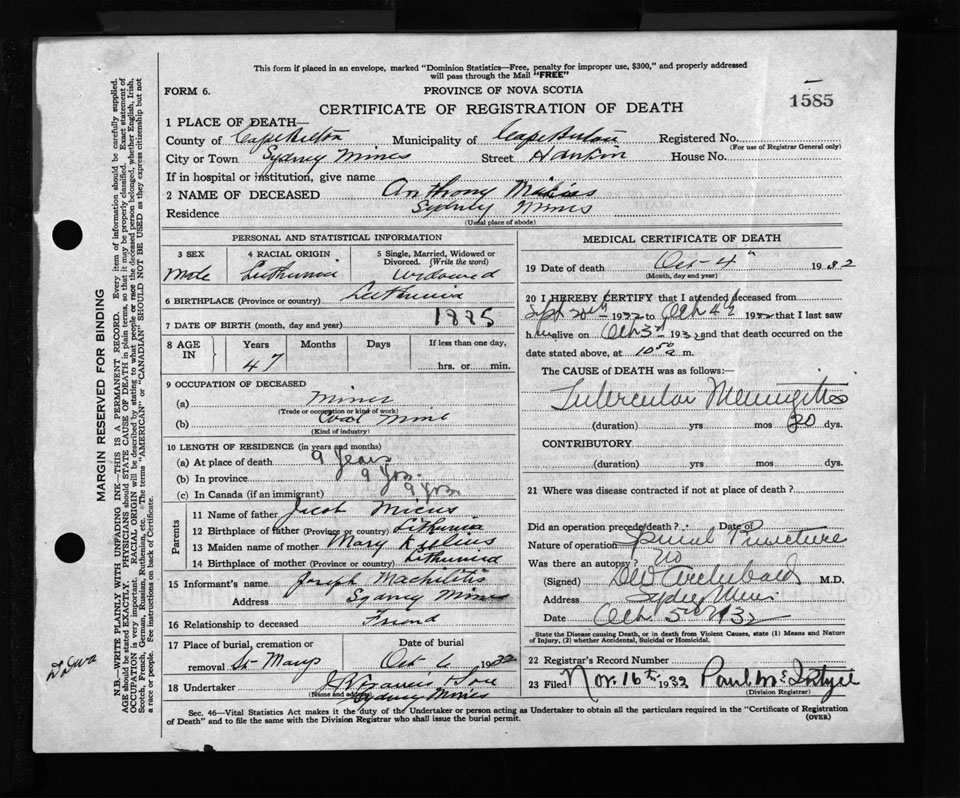 This form if placed in an envelope, marked "Dominion Statistics—Free, penalty for improper use, $300," and properly addressed
will pass through the Mail "FREE"
FORM 6. PROVINCE OF NOVA SCOTIA
CERTIFICATE OF REGISTRATION OF DEATH
1585
1 PLACE OF DEATH—
County of Cape Breton Municipality of Cape Breton Registered No.
(For use of Registrar General only)
City or Town Sydney Mines Street House No.
If in hospital or institution, give name
2 NAME OF DECEASED Anthony Micius
Residence Sydney Mines
(Usual place of abode)
PERSONAL AND STATISTICAL INFORMATION
3 SEX 4 RACIAL ORIGIN 5 Single, Married, Widowed or
Divorced. (Write the word)
Male Luthunia Widowed
6 BIRTHPLACE (Province or country) Luthunia
7 DATE OF BIRTH (month, day and year) 1885
8 AGE IN Years Months Days If less than one day,
47 hrs. or min.
9 OCCUPATION OF DECEASED
(a) Miner
(Trade or occupation or kind of work)
(b) Coal Mine
(Kind of industry)
10 LENGTH OF RESIDENCE (in years and months)
(a) At place of death 9 Years
(b) In province 9 Yrs.
(c) In Canada (if an immigrant) 9 Yrs
Parents
11 Name of father Jacob Micus
12 Birthplace of father (Province or country) Lithunia
13 Maiden name of mother Mary
14 Birthplace of mother (Province or country) Lithunia
15 Informant's name Joseph Machilitis
Address Sydney Mines
16 Relationship to deceased Friend
17 Place of burial, cremation or Date of burial
removal St Marys Oct 6 1932
18 Undertaker
(Name and address) Sydney Mines
MEDICAL CERTIFICATE OF DEATH
19 Date of death Oct-4" 1932
(Month, day and year)
20 I HEREBY CERTIFY that I attended deceased from
Sept 1932 to Oct 4th 1932 that I last saw
him alive on Oct 3rd 1932 and that death occurred on the
date stated above, at 10 50 a m.
The CAUSE of DEATH was as follows:
Tubercular Meningitis
(duration) yrs mos 20 dys.
CONTRIBUTORY
(duration) yrs mos dys.
21 Where was disease contracted if not at place of death?
Did an operation precede death? Date of
Nature of operation Spinal Puncture
Was there an autopsy? no
(Signed) Archibald M.D.
Address Sydney Mines
Date Oct 5th 1932
State the Disease causing Death, or in death from Violent Causes, state (1) Means and Nature
of Injury, (2) whether Accidental, Suicidal or Homicidal.
22 Registrar's Record Number
23 Filed Nov. 16th 1932
(Division Registrar)
Sec. 46—Vital Statistics Act makes it the duty of the Undertaker or person acting as Undertaker to obtain all the particulars required in the "Certificate of Registration
of Death" and to file the same with the Division Registrar who shall issue the burial permit. (OVER)
MARGIN RESERVED FOR BINDING
N.B. WRITE PLAINLY WITH UNFADING INK—THIS IS A PERMANENT RECORD. Every item of information should be carefully supplied.
AGE should be stated EXACTLY. PHYSICIANS should STATE CAUSE OF DEATH in plain terms, so that it may be properly classified. Exact statement of
OCCUPATION is very important. RACIAL ORIGIN will be described by stating to what people or race the deceased person belonged, whether English, Irish,
Scotch, French, German, Russian, Ruthenian, etc. The terms "AMERICAN" or "CANADIAN" SHOULD NOT BE USED as they express citizenship but not
a race or people. See instructions on back of Certificate.